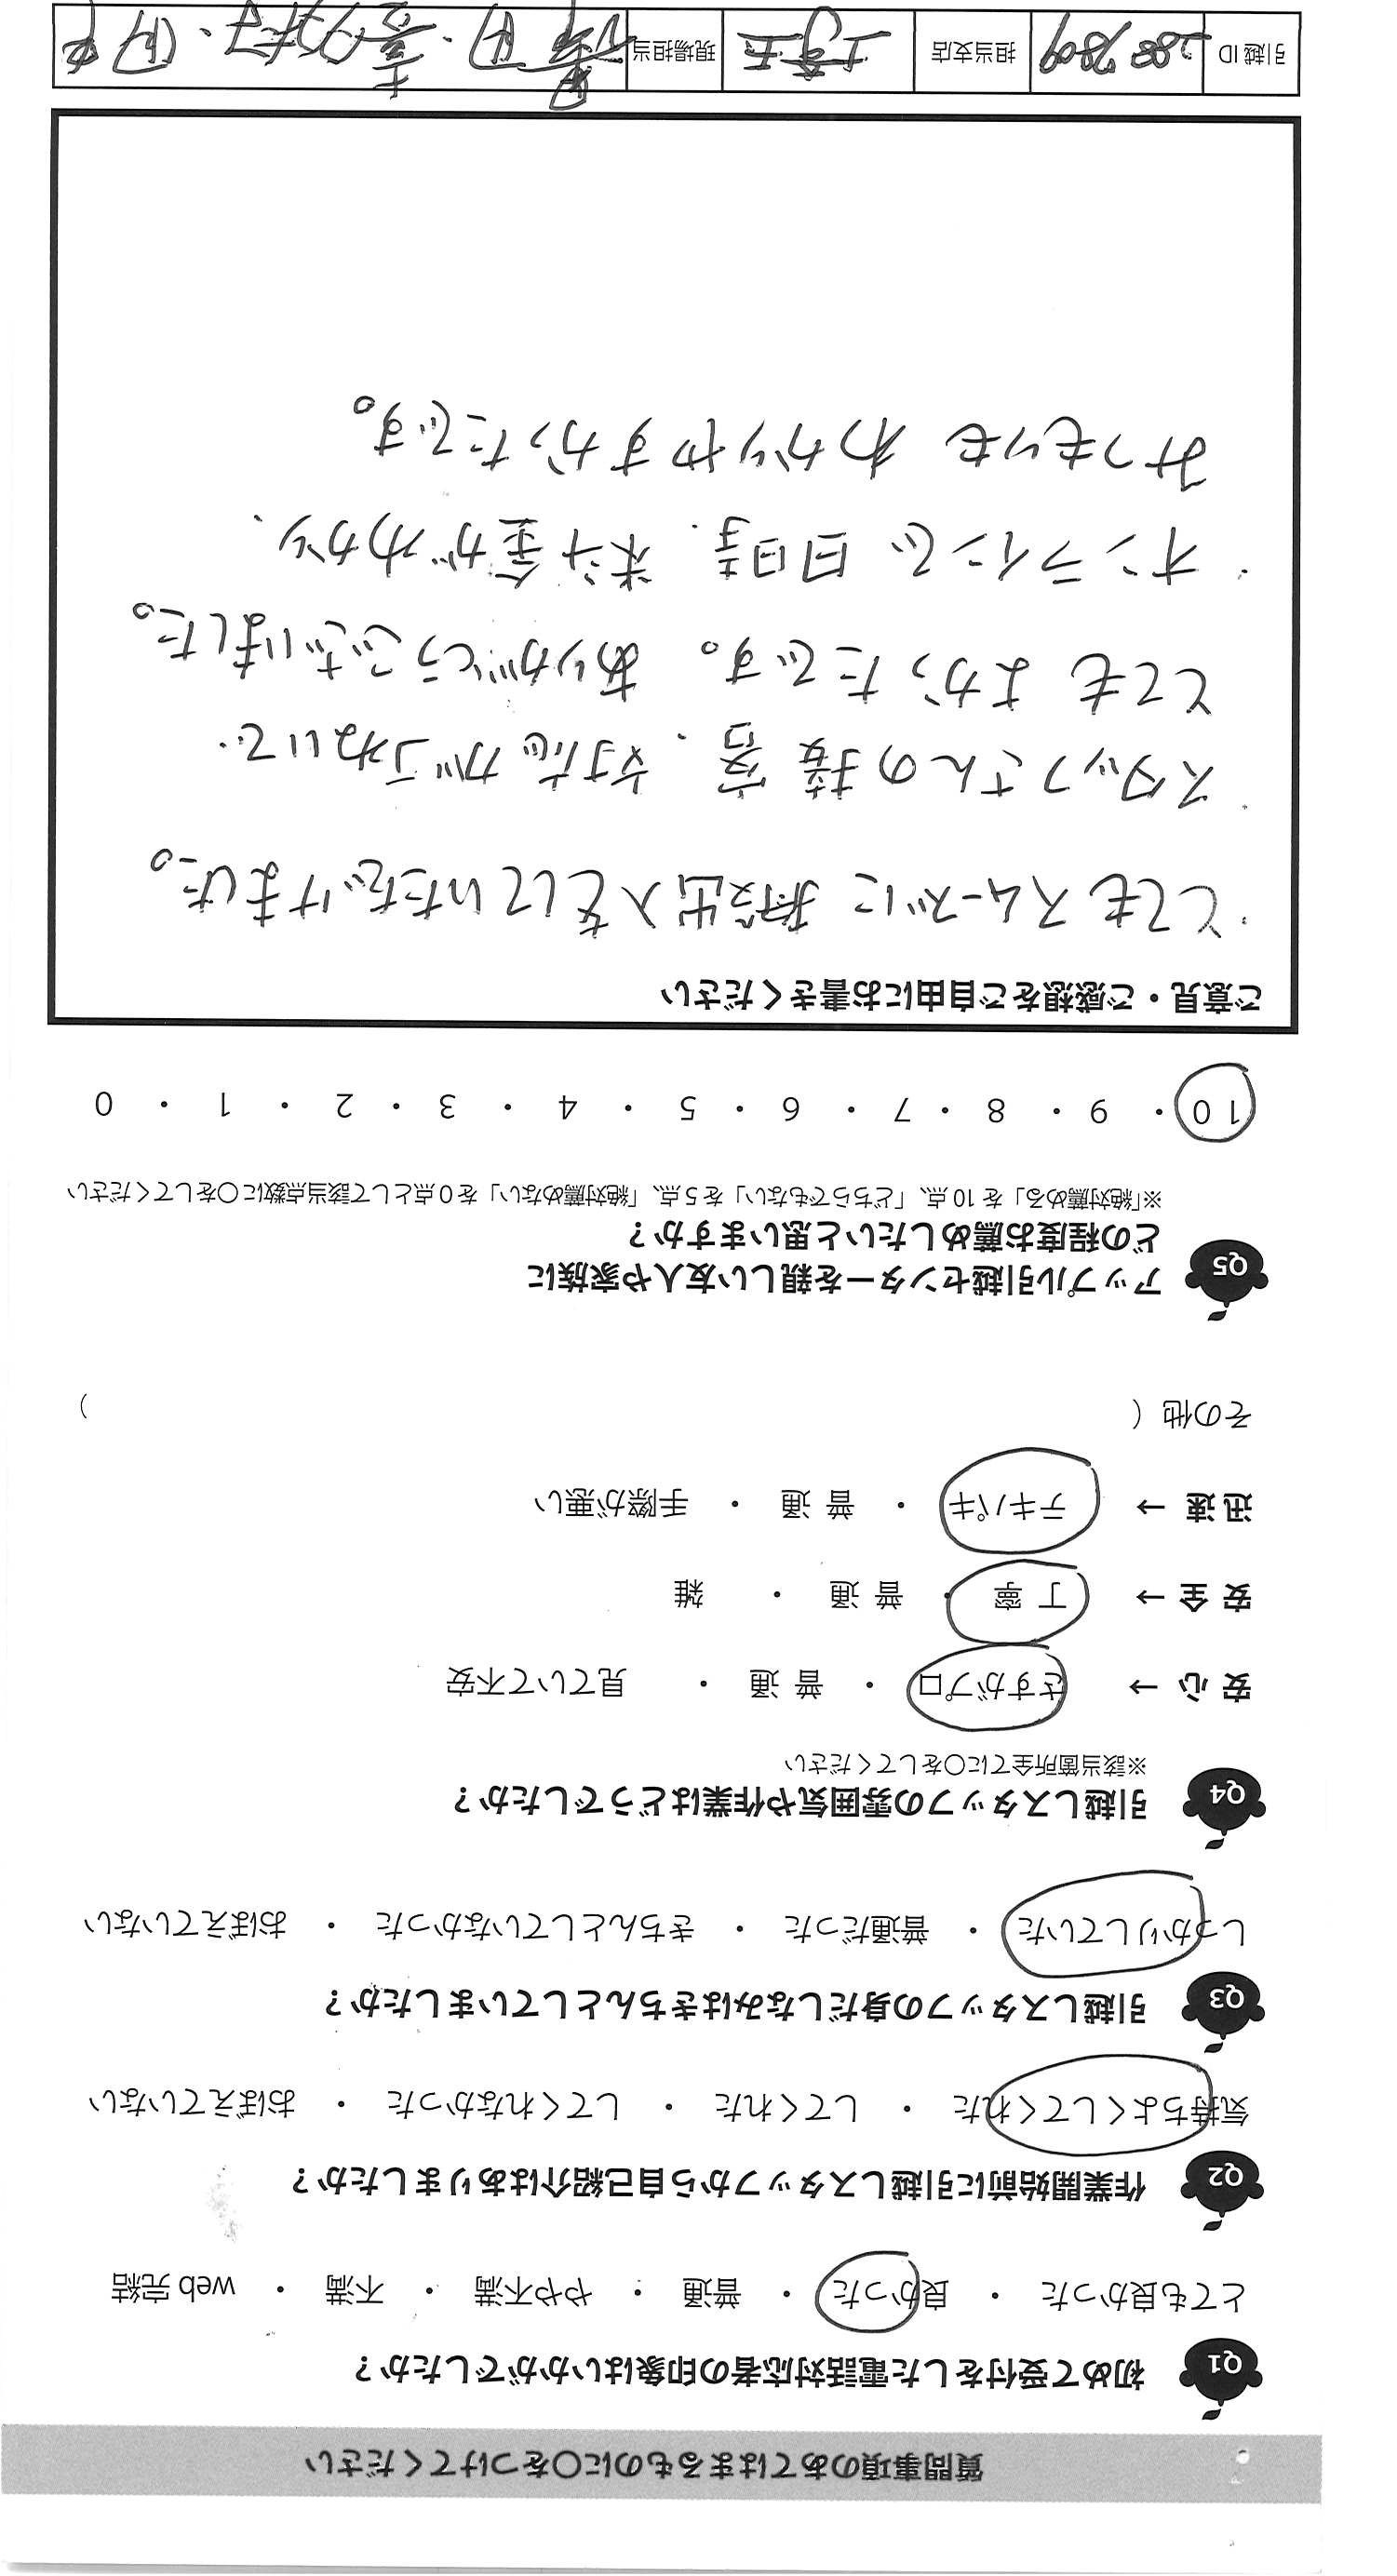 質問事項のあてはまるものに〇をつけてください
Q1 初めて受付をした電話対応者の印象はいかがでしたか？
とても良かった ・ 良かった ・ 普通 ・ やや不満 ・ 不満 ・ web 完結
Q2 作業開始前に引越しスタッフから自己紹介はありましたか？
気持ちよくしてくれた ・ してくれた ・ してくれなかった ・ おぼえていない
Q3 引越しスタッフの身だしなみはきちんとしていましたか？
しっかりしていた ・ 普通だった ・ きちんとしていなかった ・ おぼえていない
Q4 引越しスタッフの雰囲気や作業はどうでしたか？
※該当箇所全てに〇をしてください
安 心 → さすがプロ ・ 普 通 ・ 見ていて不安
安 全 → 丁 寧 ・ 普 通 ・ 雑
迅 速 → テキパキ ・ 普 通 ・ 手際が悪い
その他（ ）
Q5 アップル引越センターを親しい友人や家族に
どの程度お薦めしたいと思いますか？
※「絶対薦める」を 10 点、「どちらでもない」を 5 点、「絶対薦めない」を 0 点として該当点数に〇をしてください
10 ・ 9 ・ 8 ・ 7 ・ 6 ・ 5 ・ 4 ・ 3 ・ 2 ・ 1 ・ 0
ご意見・ご感想をご自由にお書きください
・とてもスムーズに搬出入をしていただけました。
・スタッフさんの接客、対応がていねいで
とてもよかったです。ありがとうございました。
・オンラインで日時、料金がわかり、
みつもりもわかりやすかったです。
引越 ID 2887809 担当支店 埼玉 現場担当